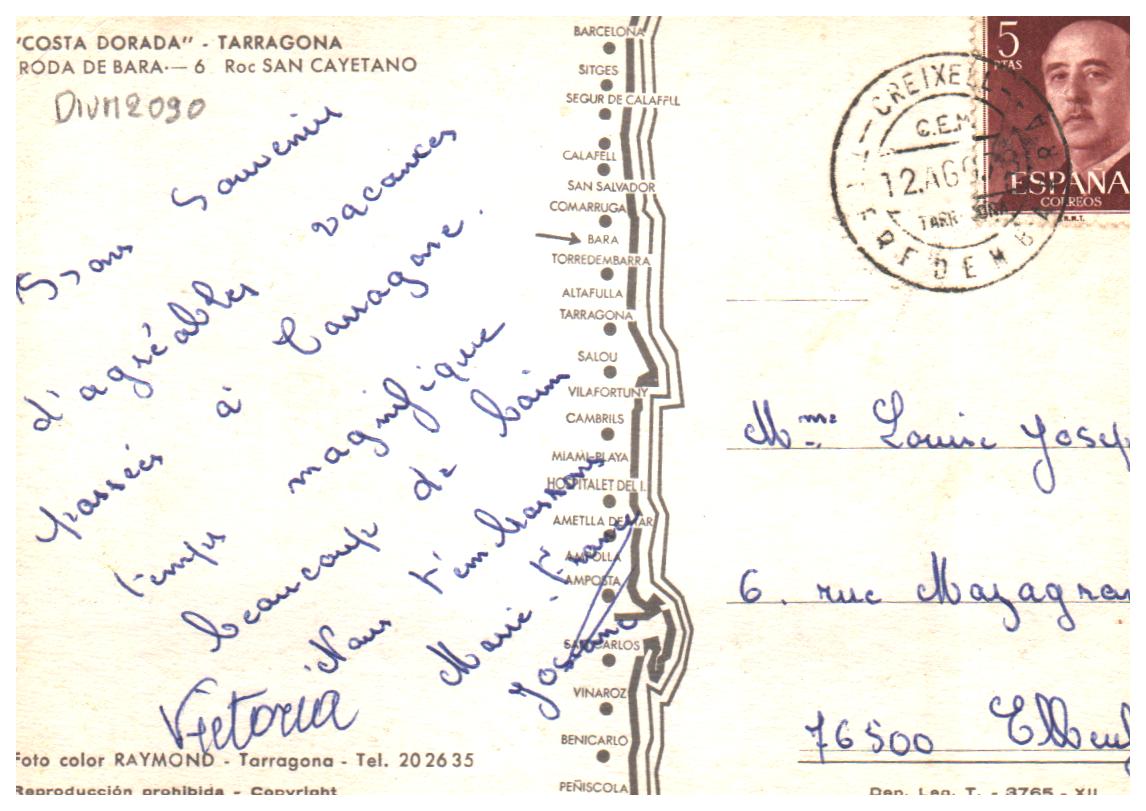 "COSTA DORADA" - TARRAGONA
RODA DE BARA.— 6 Roc SAN CAYETANO
DIVN2090
Bons Souvenirs
d'agréables vacances
passées à Tarragone.
temps magnifique
beaucoup de bains
Nous t'embrassons
Marie-France
Josiane
Victoria
Foto color RAYMOND - Tarragona - Tel. 202635
Reproducción prohibida - Copyright
BARCELONA
SITGES
SEGUR DE CALAFELL
CALAFELL
SAN SALVADOR
COMARRUGA
BARA
TORREDEMBARRA
ALTAFULLA
TARRAGONA
SALOU
VILAFORTUNY
CAMBRILS
MIAMI-PLAYA
HOSPITALET DEL I.
AMETLLA DE MAR
AMPOLLA
AMPOSTA
SAN CARLOS
VINAROZ
BENICARLO
PEÑISCOLA
5
PTAS
ESPAÑA
CORREOS
CREIXELL
C.E.M.
12.AGO
Mme Louise Josep
6. rue Mazagran
76500 Elbeuf
Dep. Leg. T. - 3765 - XII